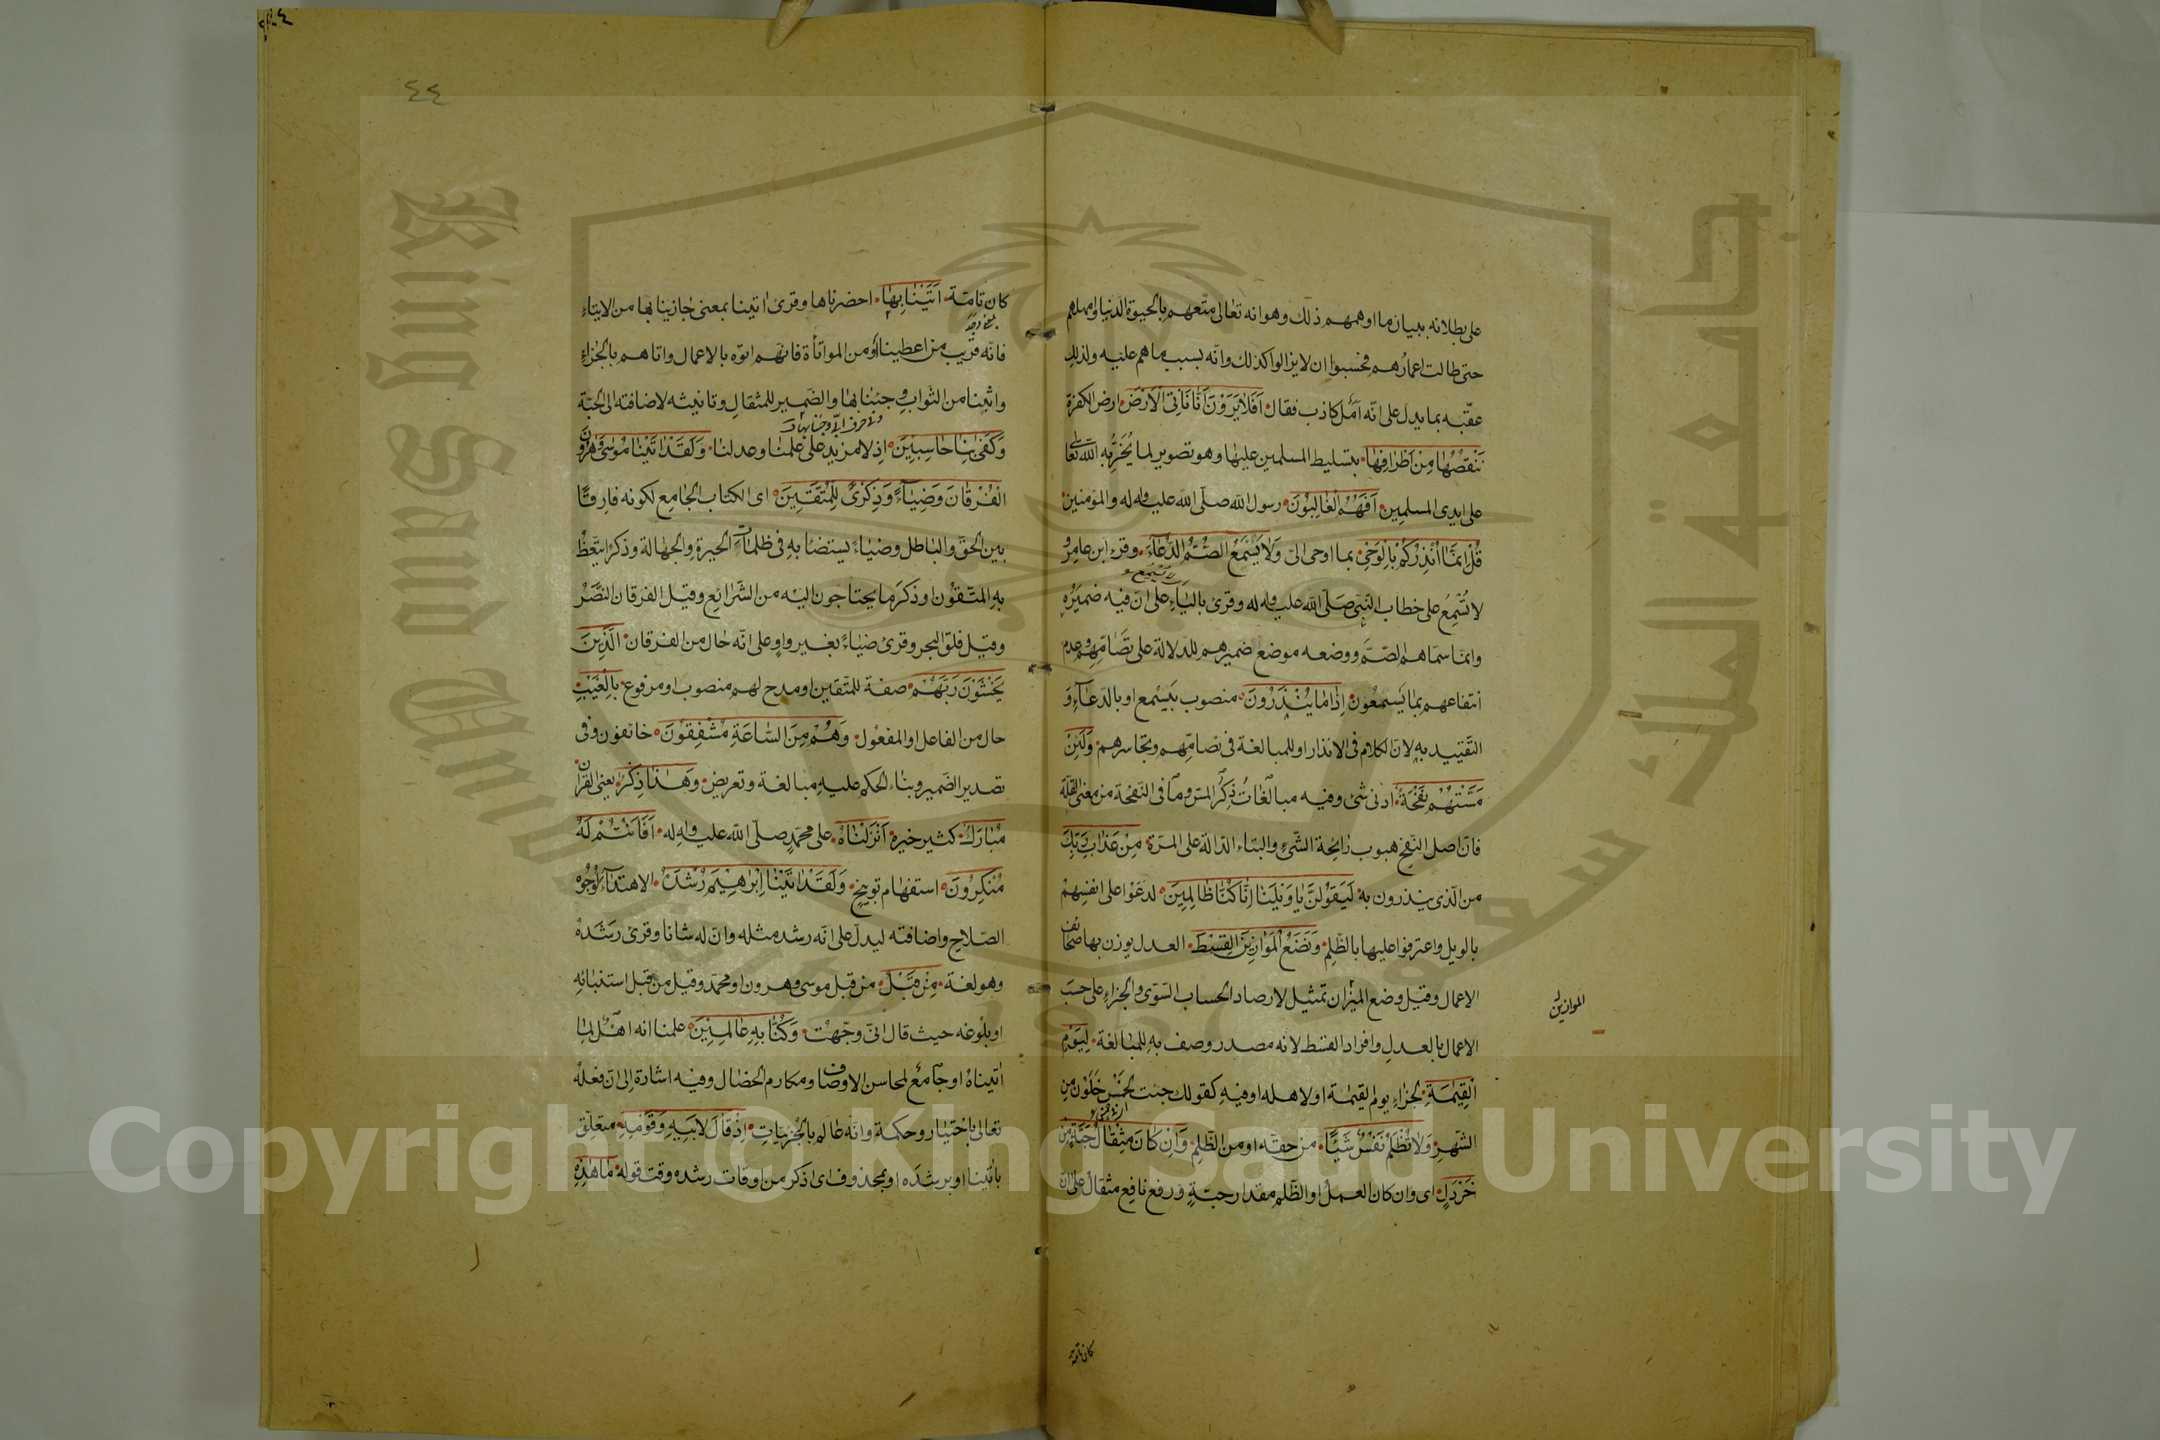 على بطلانه ببيان ما اوهمهم ذلك وهو انه تعالى متعهم بالحيوة الدنيا وامهلهم
حتى طالت اعمارهم فحسبوا ان لا يزالوا كذلك وانه بسبب ما هم عليه ولذلك
عقبه بما يدل على انه امل كاذب فقال افلا يرون انا ناتى الارض ارض الكفرة
ننقصها من اطرافها بتسليط المسلمين عليها وهو تصوير لما يخربه الله تعالى
على ايدى المسلمين افهم الغالبون رسول الله صلى الله عليه وله والمؤمنين
قل انما انذركم بالوحى بما اوحى الى ولا يسمع الصم الدعاء وقرء ابن عامر و
لا تسمع
لا تسمع على خطاب النبى صلى الله عليه وله وقرئ بالياء على ان فيه ضميره
وانما سماهم الصم ووضعه موضع ضميرهم للدلالة على تصامهم وعدم
انتفاعهم بما يسمعون اذا ما ينذرون منصوب بيسمع او بالدعاء و
التقييد به لان الكلام فى الانذار او للمبالغة فى تصامهم وتجاسرهم ولئن
مستهم نفحة ادنى شئ وفيه مبالغات ذكر المس وما فى النفحة من معنى القلة
فان اصل النفح هبوب رايحة الشئ والبناء الدالة على المرة من عذاب ربك
من الذى ينذرون به ليقولن يا ويلنا انا كنا ظالمين لدعوا على انفسهم
بالويل واعترفوا عليها بالظلم ونضع الموازين القسط العدل يوزن بها صحائف
الاعمال وقيل وضع الميزان تمثيل لارصاد الحساب السوى والجزاء على حسب
الموازين
الاعمال بالعدل وافراد القسط لانه مصدر وصف به للمبالغة ليوم
القيمة لجزاء يوم القيمة او لاهله او فيه كقولك جئت لخمس خلون من
الشهر ولا تظلم نفس شيئا من حقه او من الظلم وان كان مثقال حبة من
خردل اى وان كان العمل او الظلم مقدار حبة ورفع نافع مثقال على ان
كان تامة
٤٤
كان تامة اتينا بها احضرناها وقرئ اتينا بمعنى جازينا بها من الايتاء
فانه قريب من اعطينا او من المواتاة فانهم اتوه بالاعمال واتاهم بالجزاء
واثبنا من الثواب وجئنا بها والضمير للمثقال وتانيثه لاضافته الى الحبة
وكفى بنا حاسبين اذ لا مزيد على علمنا وعدلنا ولقد اتينا موسى وهرون
الفرقان وضياء وذكرى للمتقين اى الكتاب الجامع لكونه فارقا
بين الحق والباطل وضياء يستضاء به فى ظلمات الحيرة والجهالة وذكرا يتعظ
به المتقون او ذكر ما يحتاجون اليه من الشرائع وقيل الفرقان النصر
وقيل فلق البحر وقرئ ضياء بغير واو على انه حال من الفرقان الذين
يخشون ربهم صفة للمتقين او مدح لهم منصوب او مرفوع بالغيب
حال من الفاعل او المفعول وهم من الساعة مشفقون خائفون وفى
تصدير الضمير وبناء الحكم عليه مبالغة وتعريض وهذا ذكر يعنى القران
مبارك كثير خيره انزلناه على محمد صلى الله عليه وله افانتم له
منكرون استفهام توبيخ ولقد اتينا ابرهيم رشده الاهتداء لوجوه
الصلاح واضافته ليدل على انه رشد مثله وان له شانا وقرئ رشده
وهو لغة من قبل من قبل موسى وهرون او محمد وقيل من قبل استنبائه
او بلوغه حيث قال انى وجهت وكنا به عالمين علمنا انه اهل لما
اتيناه او جامع لمحاسن الاوصاف ومكارم الخصال وفيه اشارة الى ان فعله
تعالى باختيار وحكمة وانه عالم بالجزئيات اذ قال لابيه وقومه متعلق
باتينا او برشده او بمحذوف اى اذكر من اوقات رشده وقت قوله ما هذه
جامعة الملك سعود
King Saud University
Copyright © King Saud University